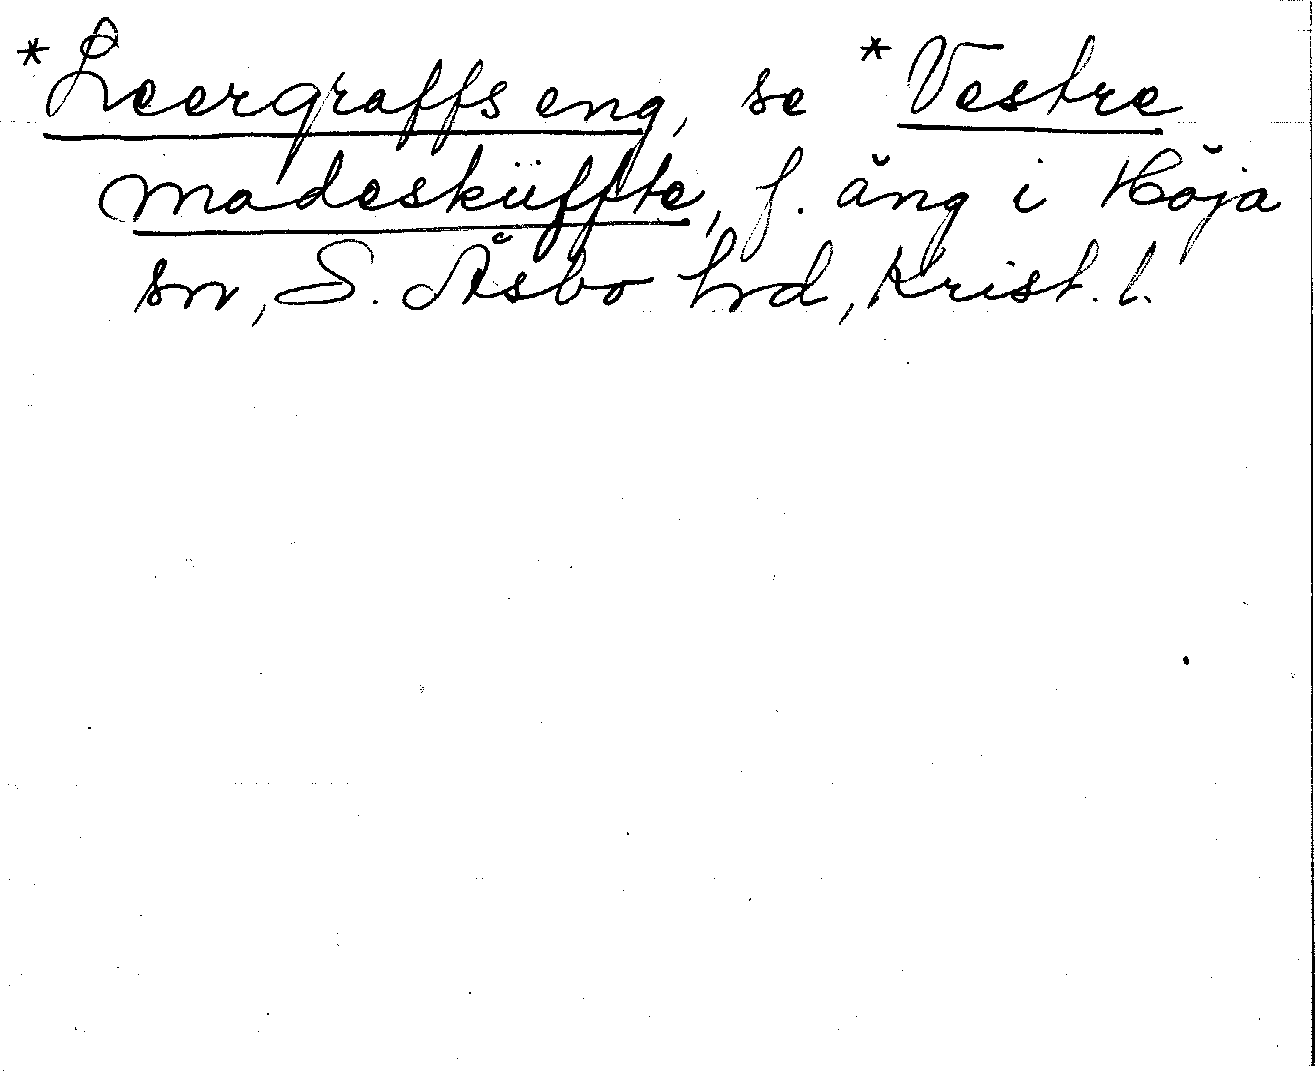 *Leergraffs eng, se *Vestre
madesküffte, f. äng i Höja
sn, S. Åsbo hd, Krist. l.